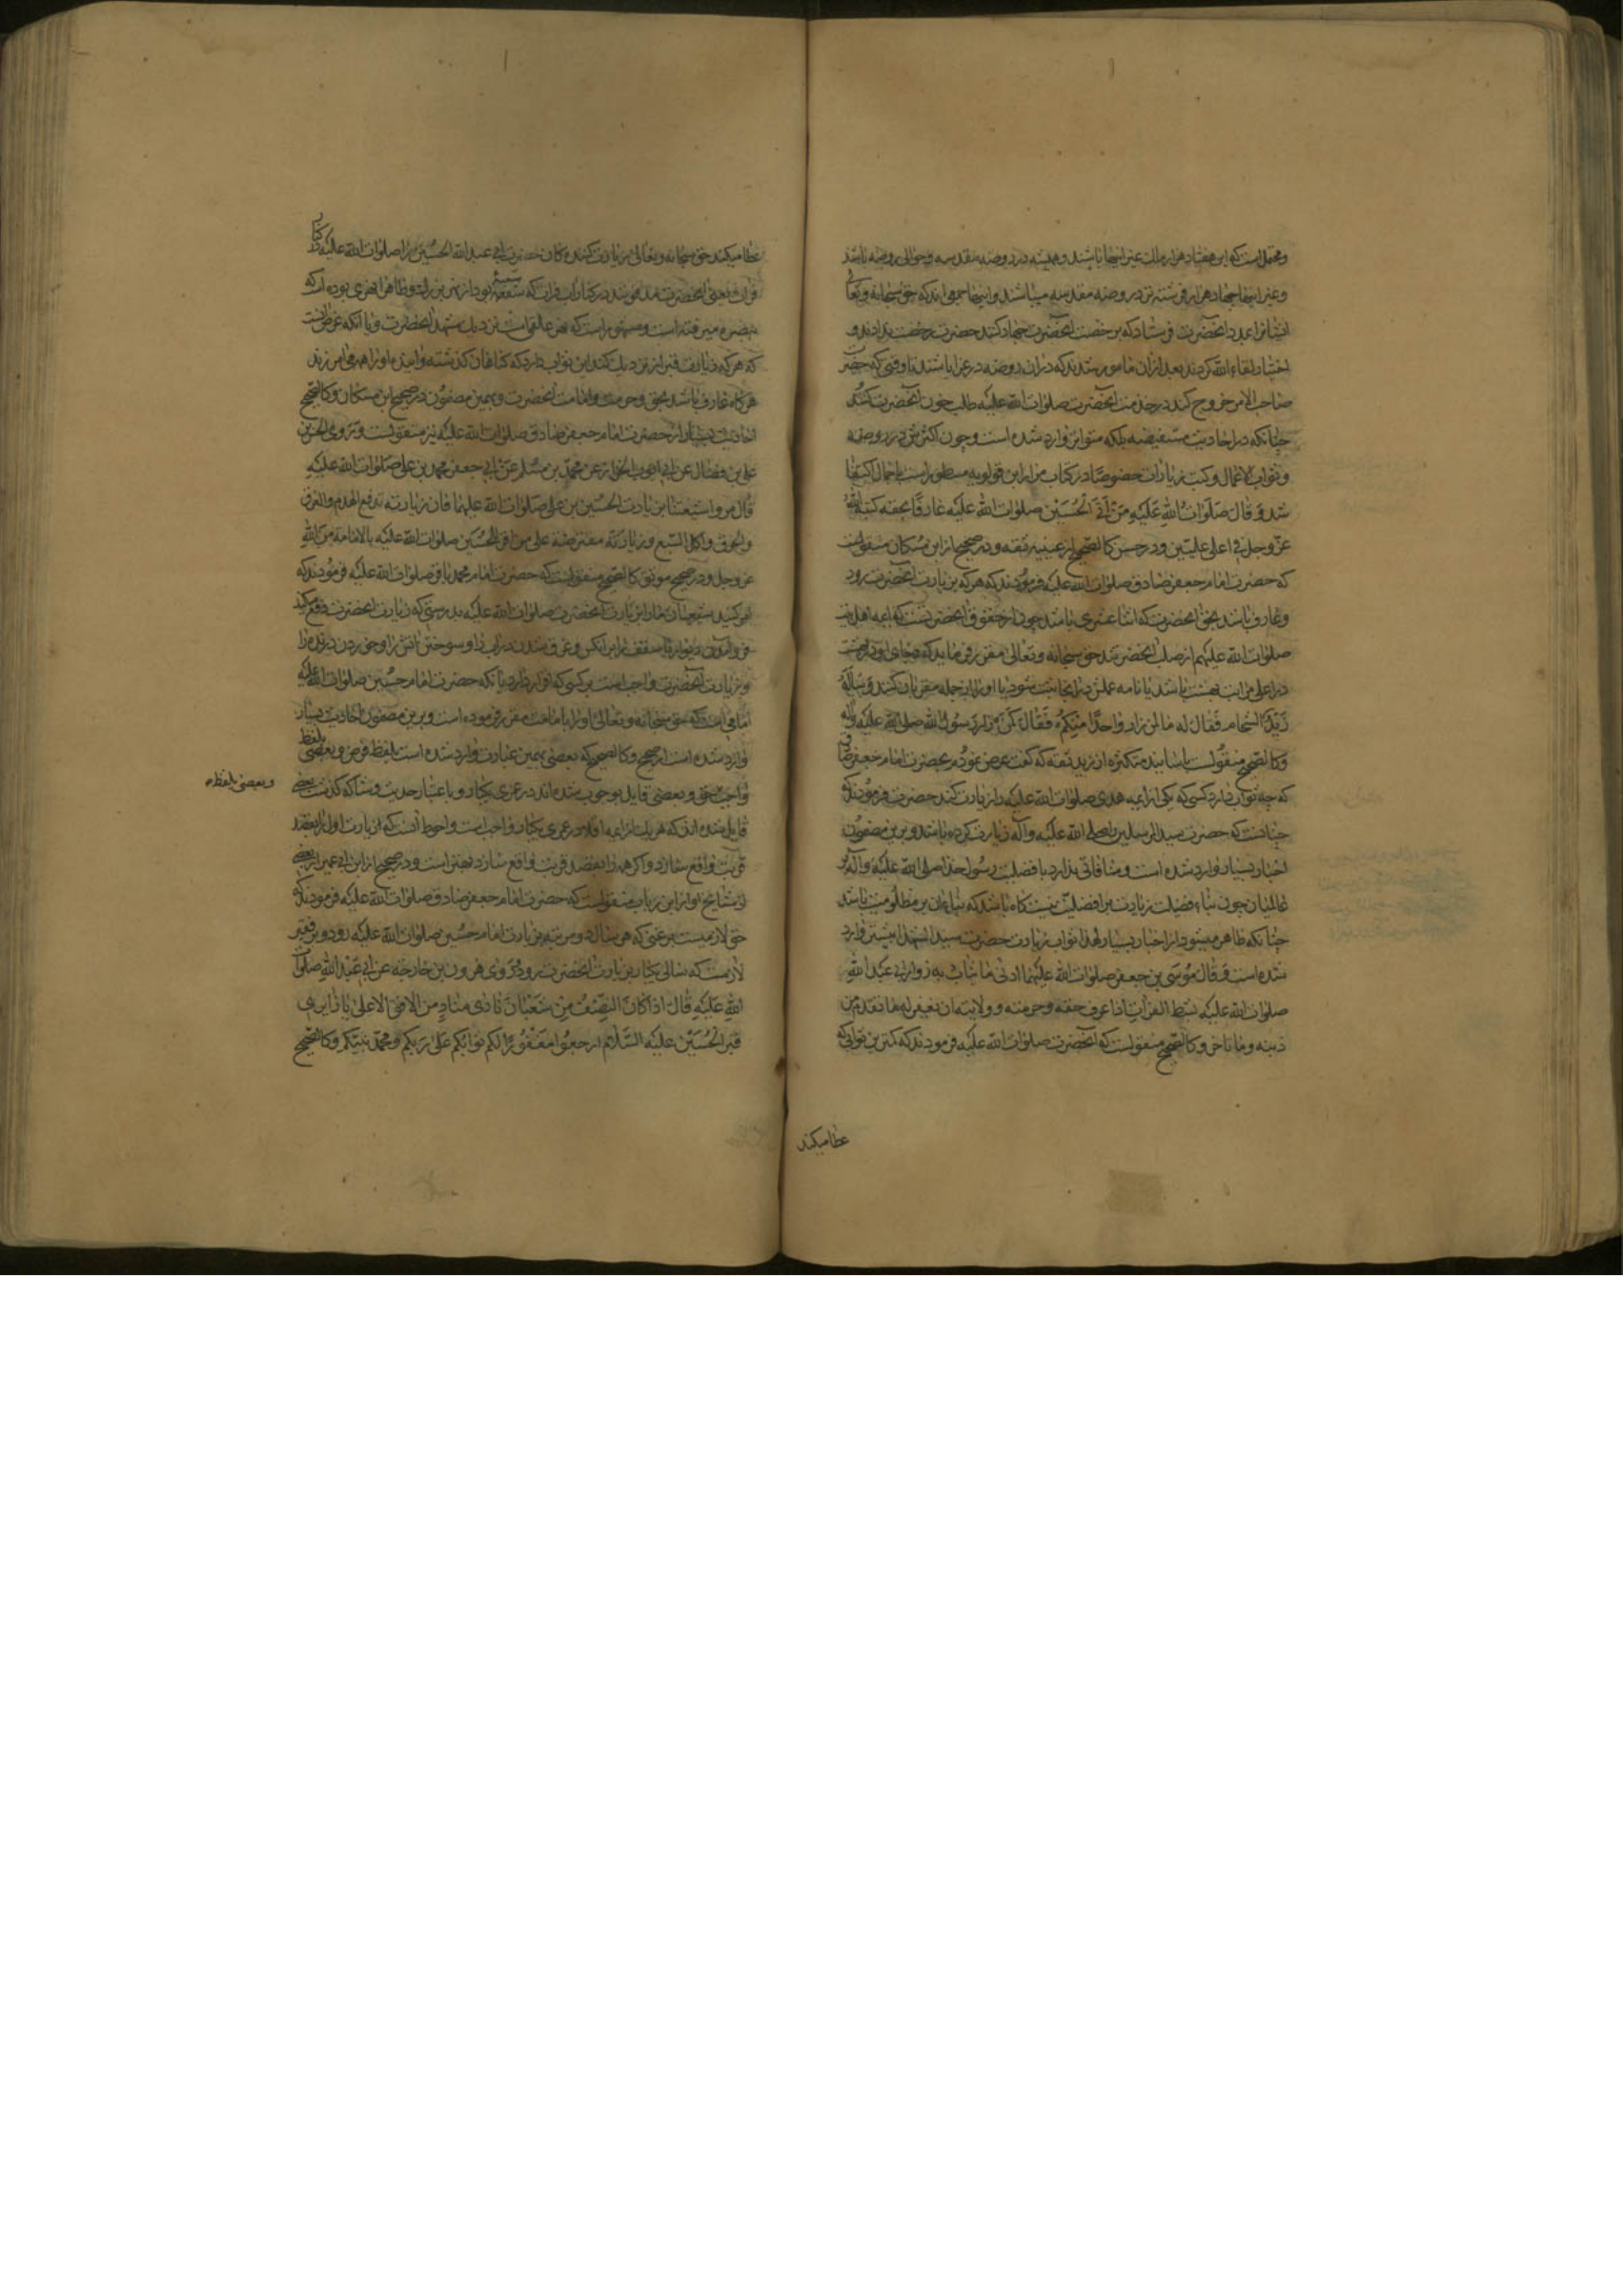 ومحتمل است که این هفتاد هزار ملک غیر اینها باشند و همیشه در روضه مقدسه و حوالی روضه باشند
و غیر اینها چهار هزار فرشته در روضه مقدسه میباشند و اینها جمعی‌اند که حق سبحانه و تعالی
ایشانرا بمدد آنحضرت فرستاد که برخصت آنحضرت جهاد کنند حضرت رخصت ندادند و
اختیار لقاء الله کردند بعد از آن مامور شدند که در آن روضه در عزا باشند تا وقتی که حضرت
صاحب الامر خروج کند در خدمت آنحضرت صلوات الله علیه طلب خون آنحضرت کنند
چنانکه در احادیث مستفیضه بلکه متواتره وارد شده است و چون اکثرش در روضه
و ثواب الاعمال و کتب زیارات خصوصا در کتاب مزار ابن قولویه مسطور است باجمال اکتفا
شد و قال صلوات الله علیه من اتی الحسین صلوات الله علیه عارفا بحقه کتبه الله
عز وجل فی اعلی علیین و در حسن کالصحیح از عیینه ثقه و در صحیح از ابن مسکان منقولست
که حضرت امام جعفر صادق صلوات الله علیه فرمودند که هر که بزیارت آنحضرت رود
و عارف باشد بحق آنحضرت که اثنا عشری باشد چون از حقوق آنحضرتست که ایمه اهل بیت
صلوات الله علیهم از صلب آنحضرتند حق سبحانه و تعالی مقرر فرماید که جای او در بهشت
در اعلی مراتب بهشت باشد یا نامه عملش در آنجا ثبت شود یا او را از جمله مقربان کنند و ساله
زید الشحام فقال له ما لمن زار واحدا منکم فقال کمن زار رسول الله صلی الله علیه واله
و کالصحیح منقولست باسانید متکثره از زید ثقه که گفت عرض نمودم بحضرت امام جعفر صادق
که چه ثواب دارد کسی که یکی از ایمه هدی صلوات الله علیهم را زیارت کند حضرت فرمودند که
چنانست که حضرت سید المرسلین را صلی الله علیه وآله زیارت کرده باشد و برین مضمون
اخبار بسیار وارد شده است و منافاتی ندارد با افضلیت رسول خدا صلی الله علیه وآله بر
عالمیان چون بناء فضیلت زیارت بر افضلیت نیست گاه باشد که بناء آن بر مظلومیت باشد
چنانکه ظاهر میشود از اخبار بسیار لهذا ثواب زیارت حضرت سید الشهدا بیشتر وارد
شده است و قال موسی بن جعفر صلوات الله علیهما ادنی ما یثاب به زوار ابی عبد الله
صلوات الله علیه بشط الفرات اذا عرف حقه و حرمته و ولایته ان یغفر له ما تقدم من
ذنبه و ما تاخر و کالصحیح منقولست که آنحضرت صلوات الله علیه فرمودند که کمترین ثوابی که
عطا میکند
عطا میکند حق سبحانه و تعالی زیارت کننده کان حضرت ابی عبد الله الحسین را صلوات الله علیه در کنار
فرات یعنی آنحضرت مدفونند در کنار آب فرات که
ببصره میرفته است و مشهور است که نهر علقمه است نزدیک مشهد آنحضرت و یا آنکه غرض آنست
که هر که زیارت قبر از نزدیک کند این ثواب دارد که گناهان گذشته و آینده او را همه می‌آمرزند
هر گاه عارف باشد بحق و حرمت و امامت آنحضرت و بهمین مضمون در صحیح ابن مسکان و کالصحیح
احادیث بسیار از حضرت امام جعفر صادق صلوات الله علیه نیز منقولست و روی الحسن بن
علی بن فضال عن ابی ایوب الخزاز عن محمد بن مسلم عن ابی جعفر محمد بن علی صلوات الله علیه
قال مروا شیعتنا بزیارت الحسین بن علی صلوات الله علیهما فان زیارته تدفع الهدم والغرق
والحرق واکل السبع و زیارته مفترضة علی من اقر للحسین صلوات الله علیه بالامامة من الله
عز وجل و در صحیح و موثق کالصحیح منقولست که حضرت امام محمد باقر صلوات الله علیه فرمودند که
امر کنید شیعیان ما را بزیارت آنحضرت صلوات الله علیه بدرستی که زیارت آنحضرت دفع میکند
فرو آمدن دیوار یا سقف را بر آنکس و غرق شدن در آب را و سوختن آتش را و خوردن درنده را
و زیارت آنحضرت واجب است بر کسی که اقرار دارد بآنکه حضرت امام حسین صلوات الله علیه
امامی است که حق سبحانه و تعالی او را بامامت مقرر فرموده است و برین مضمون احادیث بسیار
وارد شده است از صحیح و کالصحیح که بعضی بهمین عبارت وارد شده است بلفظ فرض و بعضی بلفظ
واجب و حق و بعضی قایل بوجوب شده‌اند در عمری یکبار و باعتبار حدیث وشا که گذشت بعضی
قایل شده‌اند که هر یک از ایمه اقلا در عمری یکبار واجب است و احوط آنست که زیارت اول را بقصد
قربت واقع سازد و اگر همه را بقصد قربت واقع سازد بهتر است و در صحیح از ابن ابی عمیر از بعضی
از مشایخ او از ابن رئاب منقولست که حضرت امام جعفر صادق صلوات الله علیه فرمودند که
حق لازمیست بر غنی که هر سال دو مرتبه بزیارت امام حسین صلوات الله علیه رود و بر فقیر
لازمست که سالی یکبار بزیارت آنحضرت رود و روی هرون بن خارجه عن ابی عبد الله صلوات
الله علیه قال اذا کان النصف من شعبان نادی مناد من الافق الاعلی یا زایری
قبر الحسین علیه السلام ارجعوا مغفورا لکم ثوابکم علی ربکم و محمد نبیکم و کالصحیح
و بعضی بلفظ